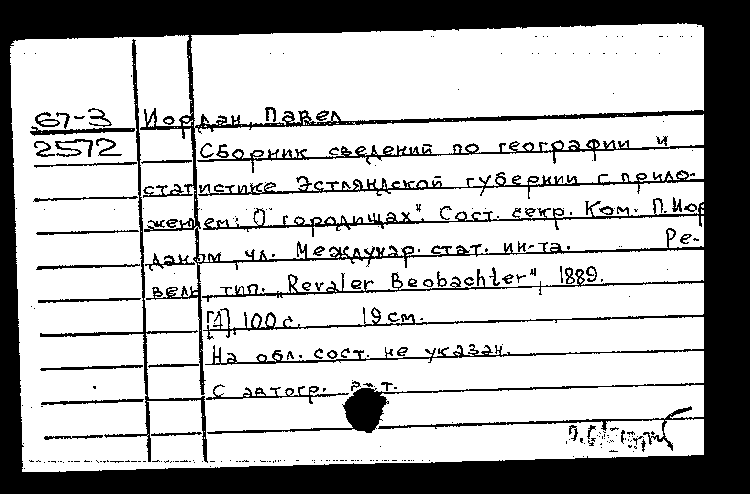 67-3 Иордан, Павел
2572 Сборник сведений по географии и
статистике Эстляндской губернии с прило-
жением: О городищах". Сост. секр. Ком. П. Иор
даном, чл. Междунар. стат. ин-та. Ре-
вель, тип. „Revaler Beobachter", 1889.
[4], 100 с. 19 см.
На обл. сост. не указан.
С автогр. авт.